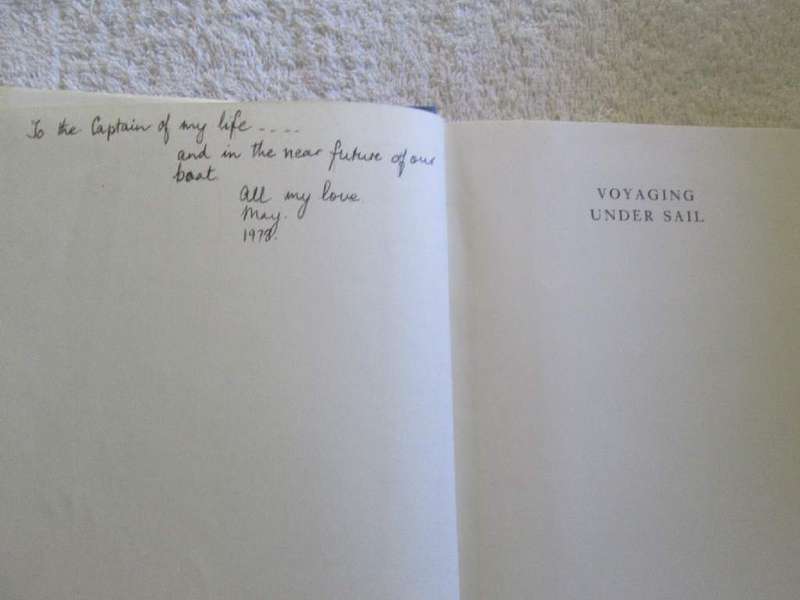 To the Captain of my life ....
and in the near future of our
boat.
All my love.
May.
1978.
VOYAGING
UNDER SAIL